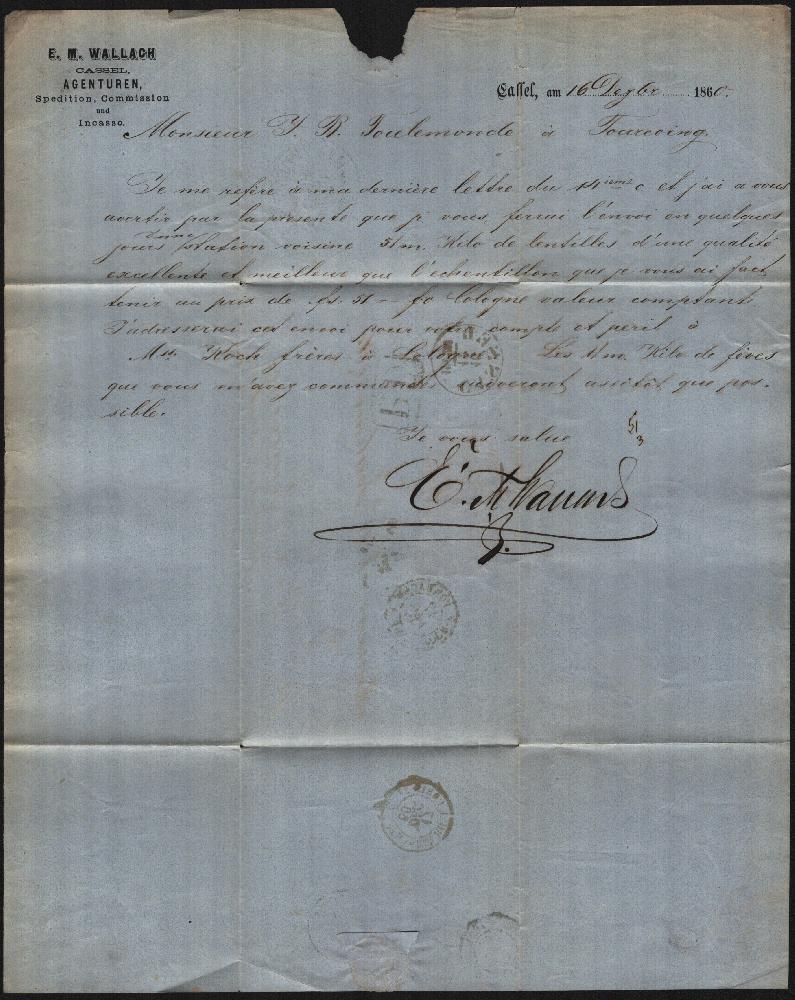 E. M. WALLACH
CASSEL,
AGENTUREN,
Spedition, Commission
und
Incasso.
Cassel, am 16 Dezbr 1860.
Monsieur J. B. Toulemonde à Tourcoing.
Je me refère à ma dernière lettre du 14ième c et j'ai a vous
avertir par la presente que je vous ferrai l'envoi en quelques
jours station voisine 5/m. Kilo de lentilles d'une qualité
excellente et meilleur que l'echentillon que je vous ai fait
tenir au prix de fs. 51 — fo Cologne valeur comptant
J'adresserai cet envoi pour votre compte et peril à
Mss. Koch frères à Cologne Les /m. Kilo de fèves
que vous en avez commandé suiveront assitôt que pos-
sible.
Je vous salue
51
3
E. M. Wallach